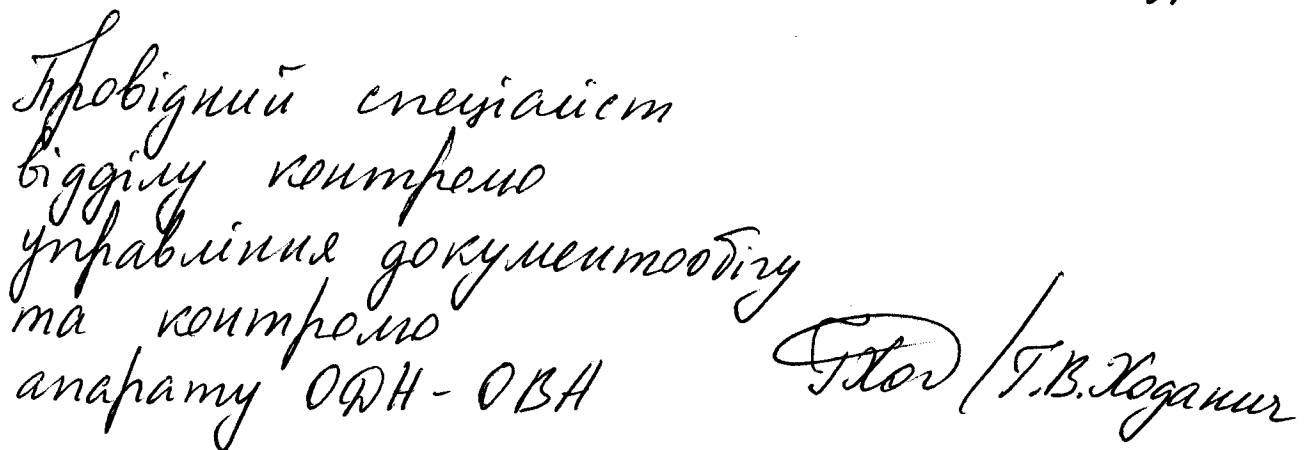 Провідний спеціаліст
відділу контролю
управління документообігу
та контролю
апарату ОДА - ОВА
/Г.В.Ходанич